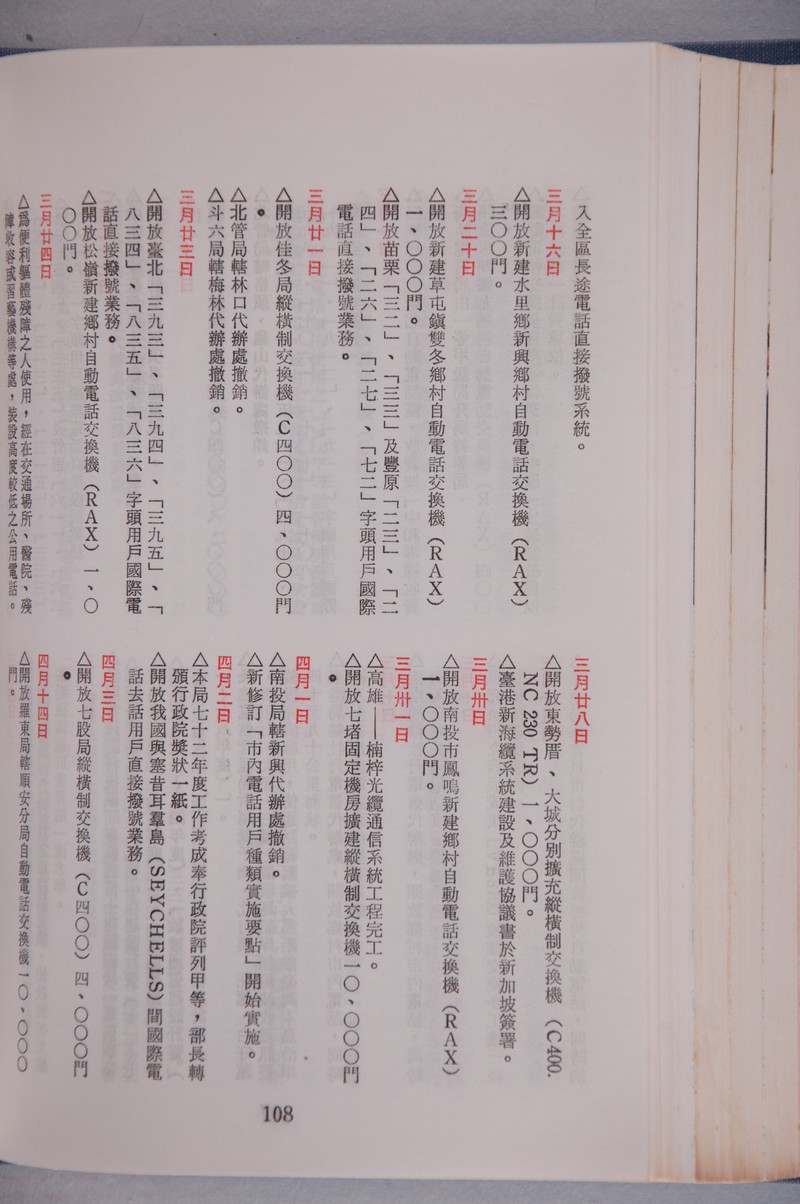 入全區長途電話直接撥號系統。
三月十六日
△開放新建水里鄉新興鄉村自動電話交換機（ＲＡＸ）
三〇〇門。
三月二十日
△開放新建草屯鎭雙冬鄉村自動電話交換機（ＲＡＸ）
一、〇〇〇門。
△開放苗栗「三二」、「三三」及豐原「二三」、「二
四」、「二六」、「二七」、「七二」字頭用戶國際
電話直接撥號業務。
三月廿一日
△開放佳冬局縱橫制交換機（Ｃ四〇〇）四、〇〇〇門
。
△北管局轄林口代辦處撤銷。
△斗六局轄梅林代辦處撤銷。
三月廿三日
△開放臺北「三九三」、「三九四」、「三九五」、「
八三四」、「八三五」、「八三六」字頭用戶國際電
話直接撥號業務。
△開放松嶺新建鄉村自動電話交換機（ＲＡＸ）一、〇
〇〇門。
三月廿四日
△爲便利軀體殘障之人使用，經在交通場所、醫院、殘
障收容或習藝機構等處，裝設高度較低之公用電話。
三月廿八日
△開放東勢厝、大城分別擴充縱橫制交換機（C400.
NC 230 TR）一、〇〇〇門。
△臺港新海纜系統建設及維護協議書於新加坡簽署。
三月卅日
△開放南投市鳳鳴新建鄉村自動電話交換機（ＲＡＸ）
一、〇〇〇門。
三月卅一日
△高雄——楠梓光纜通信系統工程完工。
△開放七堵固定機房擴建縱橫制交換機一〇、〇〇〇門
。
四月一日
△南投局轄新興代辦處撤銷。
△新修訂「市內電話用戶種類實施要點」開始實施。
四月二日
△本局七十二年度工作考成奉行政院評列甲等，部長轉
頒行政院獎狀一紙。
△開放我國與塞昔耳羣島（SEYCHELLS）間國際電
話去話用戶直接撥號業務。
四月三日
△開放七股局縱橫制交換機（Ｃ四〇〇）四、〇〇〇門
。
四月十四日
△開放羅東局轄順安分局自動電話交換機一〇、〇〇〇
門。
108